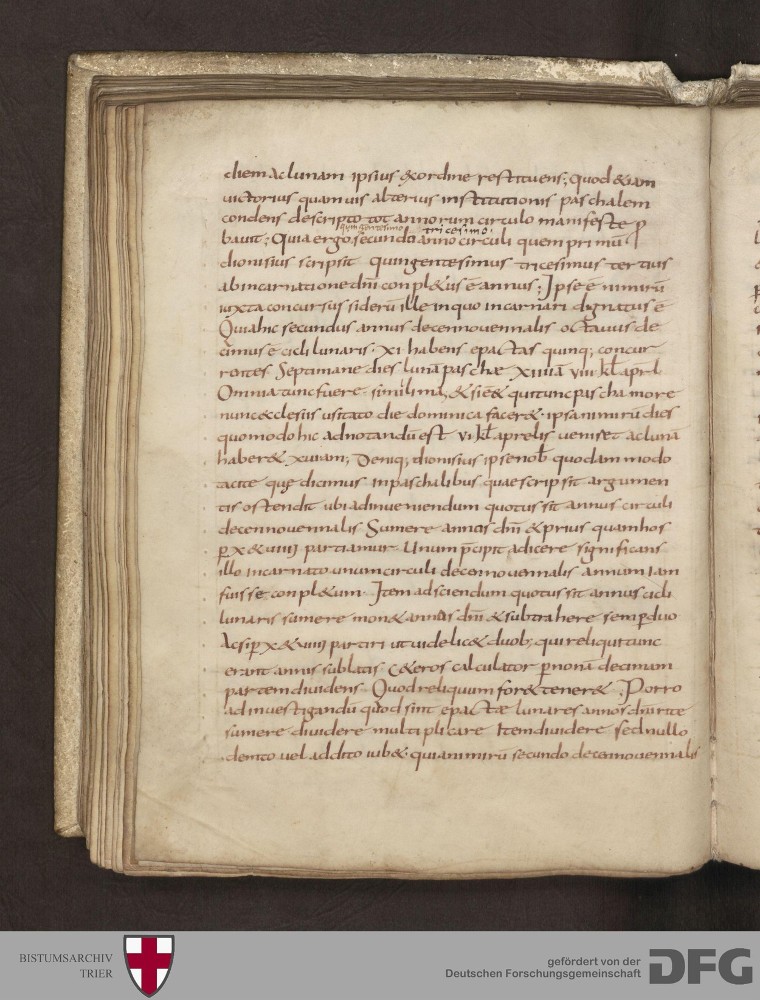 diem ac lunam ipsius & ordine restituens; quod &iam
uictorius quamuis alterius institutionis paschalem
condens descripto tot annorum circulo manifeste ꝓ
quingentesimo tricesimo.
bauit; Quia ergo secundo anno circuli quem primū
dionisius scripsit quingentesimus tricesimus tertius
ab incarnatione dn̄i conpl&us ē annus; Ipse ē nimirū
iuxta concursus siderū ille in quo incarnari dignatus ē
Quia hic secundus annus decennouennalis octauus de
cimus ē cicli lunaris. XI habens epactas quinq; concur
rentes Septimane dies lunā paschae XIIIIA VIII kl̄ aprl̄
Omnia tunc fuere simillima, & si ē& qui tunc pascha more
nunc ecclesiis usitato die dominica facer&. ipsa nimirū dies
quomodo hic adnotandū est VI kl̄ aprelis ueniset ac lunā
haber& XVIAM; Deniq; dionisius ipse nob̄ quodam modo
tacite quę dicimus in paschalibus quae scripsit argumen
tis ostendit ubi ad inueniendum quotus sit annus circuli
decennouennalis Sumere annos dn̄i & prius quam hos
ꝑ X & VIIII partiamur Unum p̄cipit adicere significans
illo incarnato unum circuli decennouennalis annum iam
fuisse conpl&um. Item ad sciendum quotus sit annus cicli
lunaris sumere mon& annos dn̄i & subtrahere semꝑ duo
Ac si ꝑ X & VIIII partiri ut uidelic& duob; qui reliqui tunc
erant annis sublatis C&eros calculator ꝑ nonā decimam
partem diuidens Quod reliquum for& tener&; Porro
ad inuestigandū quod sint epactae lunares annos dn̄i rite
sumere diuidere multiplicare Item diuidere sed nullo
demto uel addito iub& quia nimirū secundo decennouennalis
BISTUMSARCHIV
TRIER
gefördert von der
Deutschen Forschungsgemeinschaft
DFG